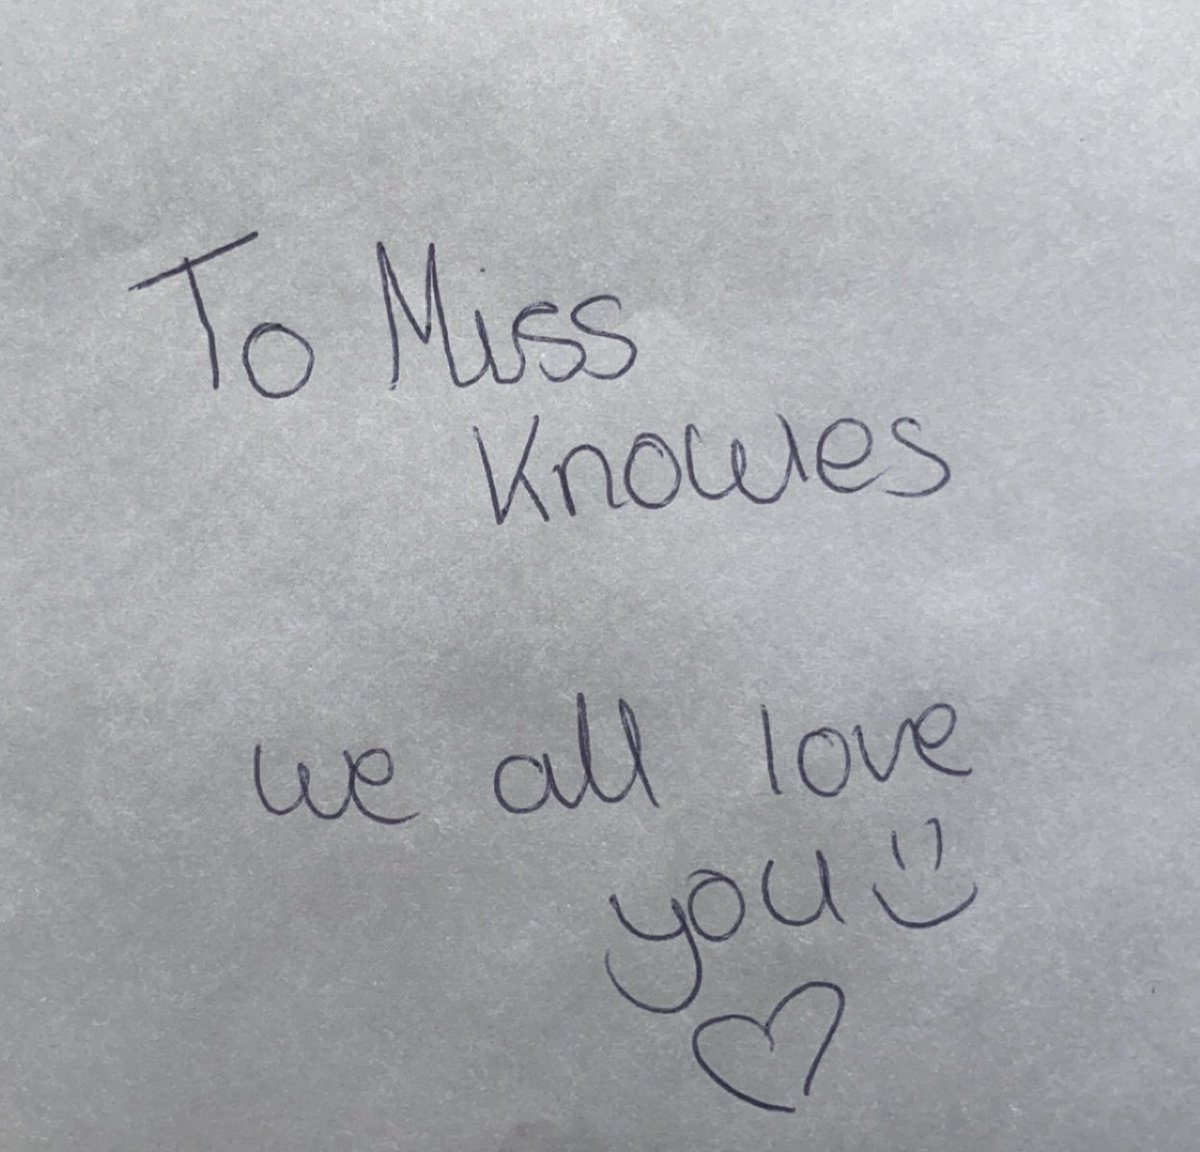 To Miss
Knowles
we all love
you